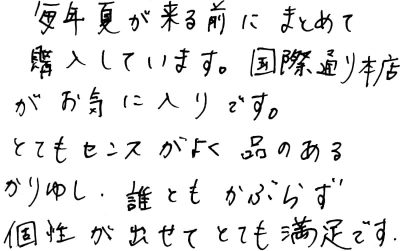 毎年夏が来る前にまとめて
購入しています。国際通り本店
がお気に入りです。
とてもセンスがよく品のある
かりゆし．誰ともかぶらず
個性が出せてとても満足です．